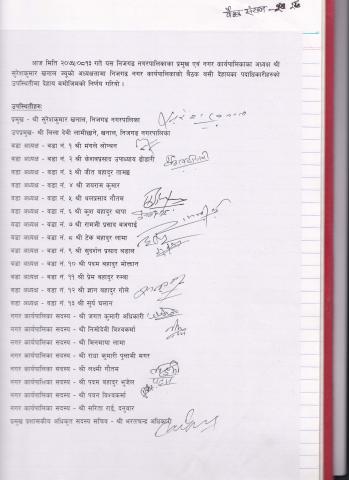 बैठक संख्या-
आज मिति २०७५/०८/१३ गते यस निजगढ नगरपालिकाका प्रमुख एवं नगर कार्यपालिकाका अध्यक्ष श्री
सुरेशकुमार खनाल ज्यूको अध्यक्षतामा निजगढ नगर कार्यपालिकाको बैठक बसी देहायका पदाधिकारीहरुको
उपस्थितीमा देहाय बमोजिमको निर्णय गरियो ।
उपस्थितीहरु
प्रमुख - श्री सुरेशकुमार खनाल, निजगढ नगरपालिका
उपप्रमुख - श्री लिला देवी लामीछाने, खनाल, निजगढ नगरपालिका
वडा अध्यक्ष - वडा नं. १ श्री मंगले लोप्चन
वडा अध्यक्ष - वडा नं. २ श्री केशवप्रसाद उपाध्याय ढोडारी
वडा अध्यक्ष - वडा नं. ३ श्री जीत बहादुर लामा
वडा अध्यक्ष - वडा नं. ४ श्री जयराम कुमार
वडा अध्यक्ष - वडा नं. ५ श्री धनप्रसाद गौतम
वडा अध्यक्ष - वडा नं. ६ श्री कुश बहादुर थापा
वडा अध्यक्ष - वडा नं. ७ श्री रामजी प्रसाद बजगाई
वडा अध्यक्ष - वडा नं. ८ श्री टेक बहादुर लामा
वडा अध्यक्ष - वडा नं. ९ श्री सुदर्शन प्रसाद दहाल
वडा अध्यक्ष - वडा नं. १० श्री पदम बहादुर मोक्तान
वडा अध्यक्ष - वडा नं. ११ श्री प्रेम बहादुर रुम्बा
वडा अध्यक्ष - वडा नं. १२ श्री ज्ञान बहादुर गोले
वडा अध्यक्ष - वडा नं. १३ श्री सुर्य घलान
नगर कार्यपालिका सदस्य - श्री जगत कुमारी अधिकारी
नगर कार्यपालिका सदस्य - श्री निमादेवी विश्वकर्मा
नगर कार्यपालिका सदस्य - श्री बिलमाया लामा
नगर कार्यपालिका सदस्य - श्री राधा कुमारी पुलामी मगर
नगर कार्यपालिका सदस्य - श्री लक्ष्मी गौतम
नगर कार्यपालिका सदस्य - श्री पदम बहादुर भुजेल
नगर कार्यपालिका सदस्य - श्री पवन विश्वकर्मा
नगर कार्यपालिका सदस्य - श्री सरिता राई, दनुवार
प्रमुख प्रशासकीय अधिकृत सदस्य सचिव - श्री भरतचन्द्र अधिकारी